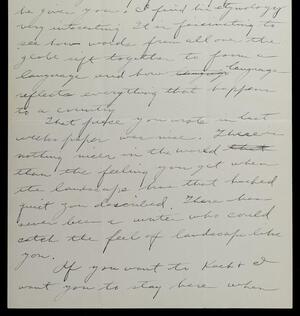 be given you. I find his etymology
very interesting. It is fascinating to
see how words from all over the
globe sift together to form a
language and how language
reflects everything that happens
to a country.
That piece you wrote in last
weeks paper was nice. There is
nothing nicer in the world
than the feeling you get when
the landscape has that hushed
quiet you described. There has
never been a writer who could
catch the feel of landscape like
you.
If you want to I
want you to stay here when